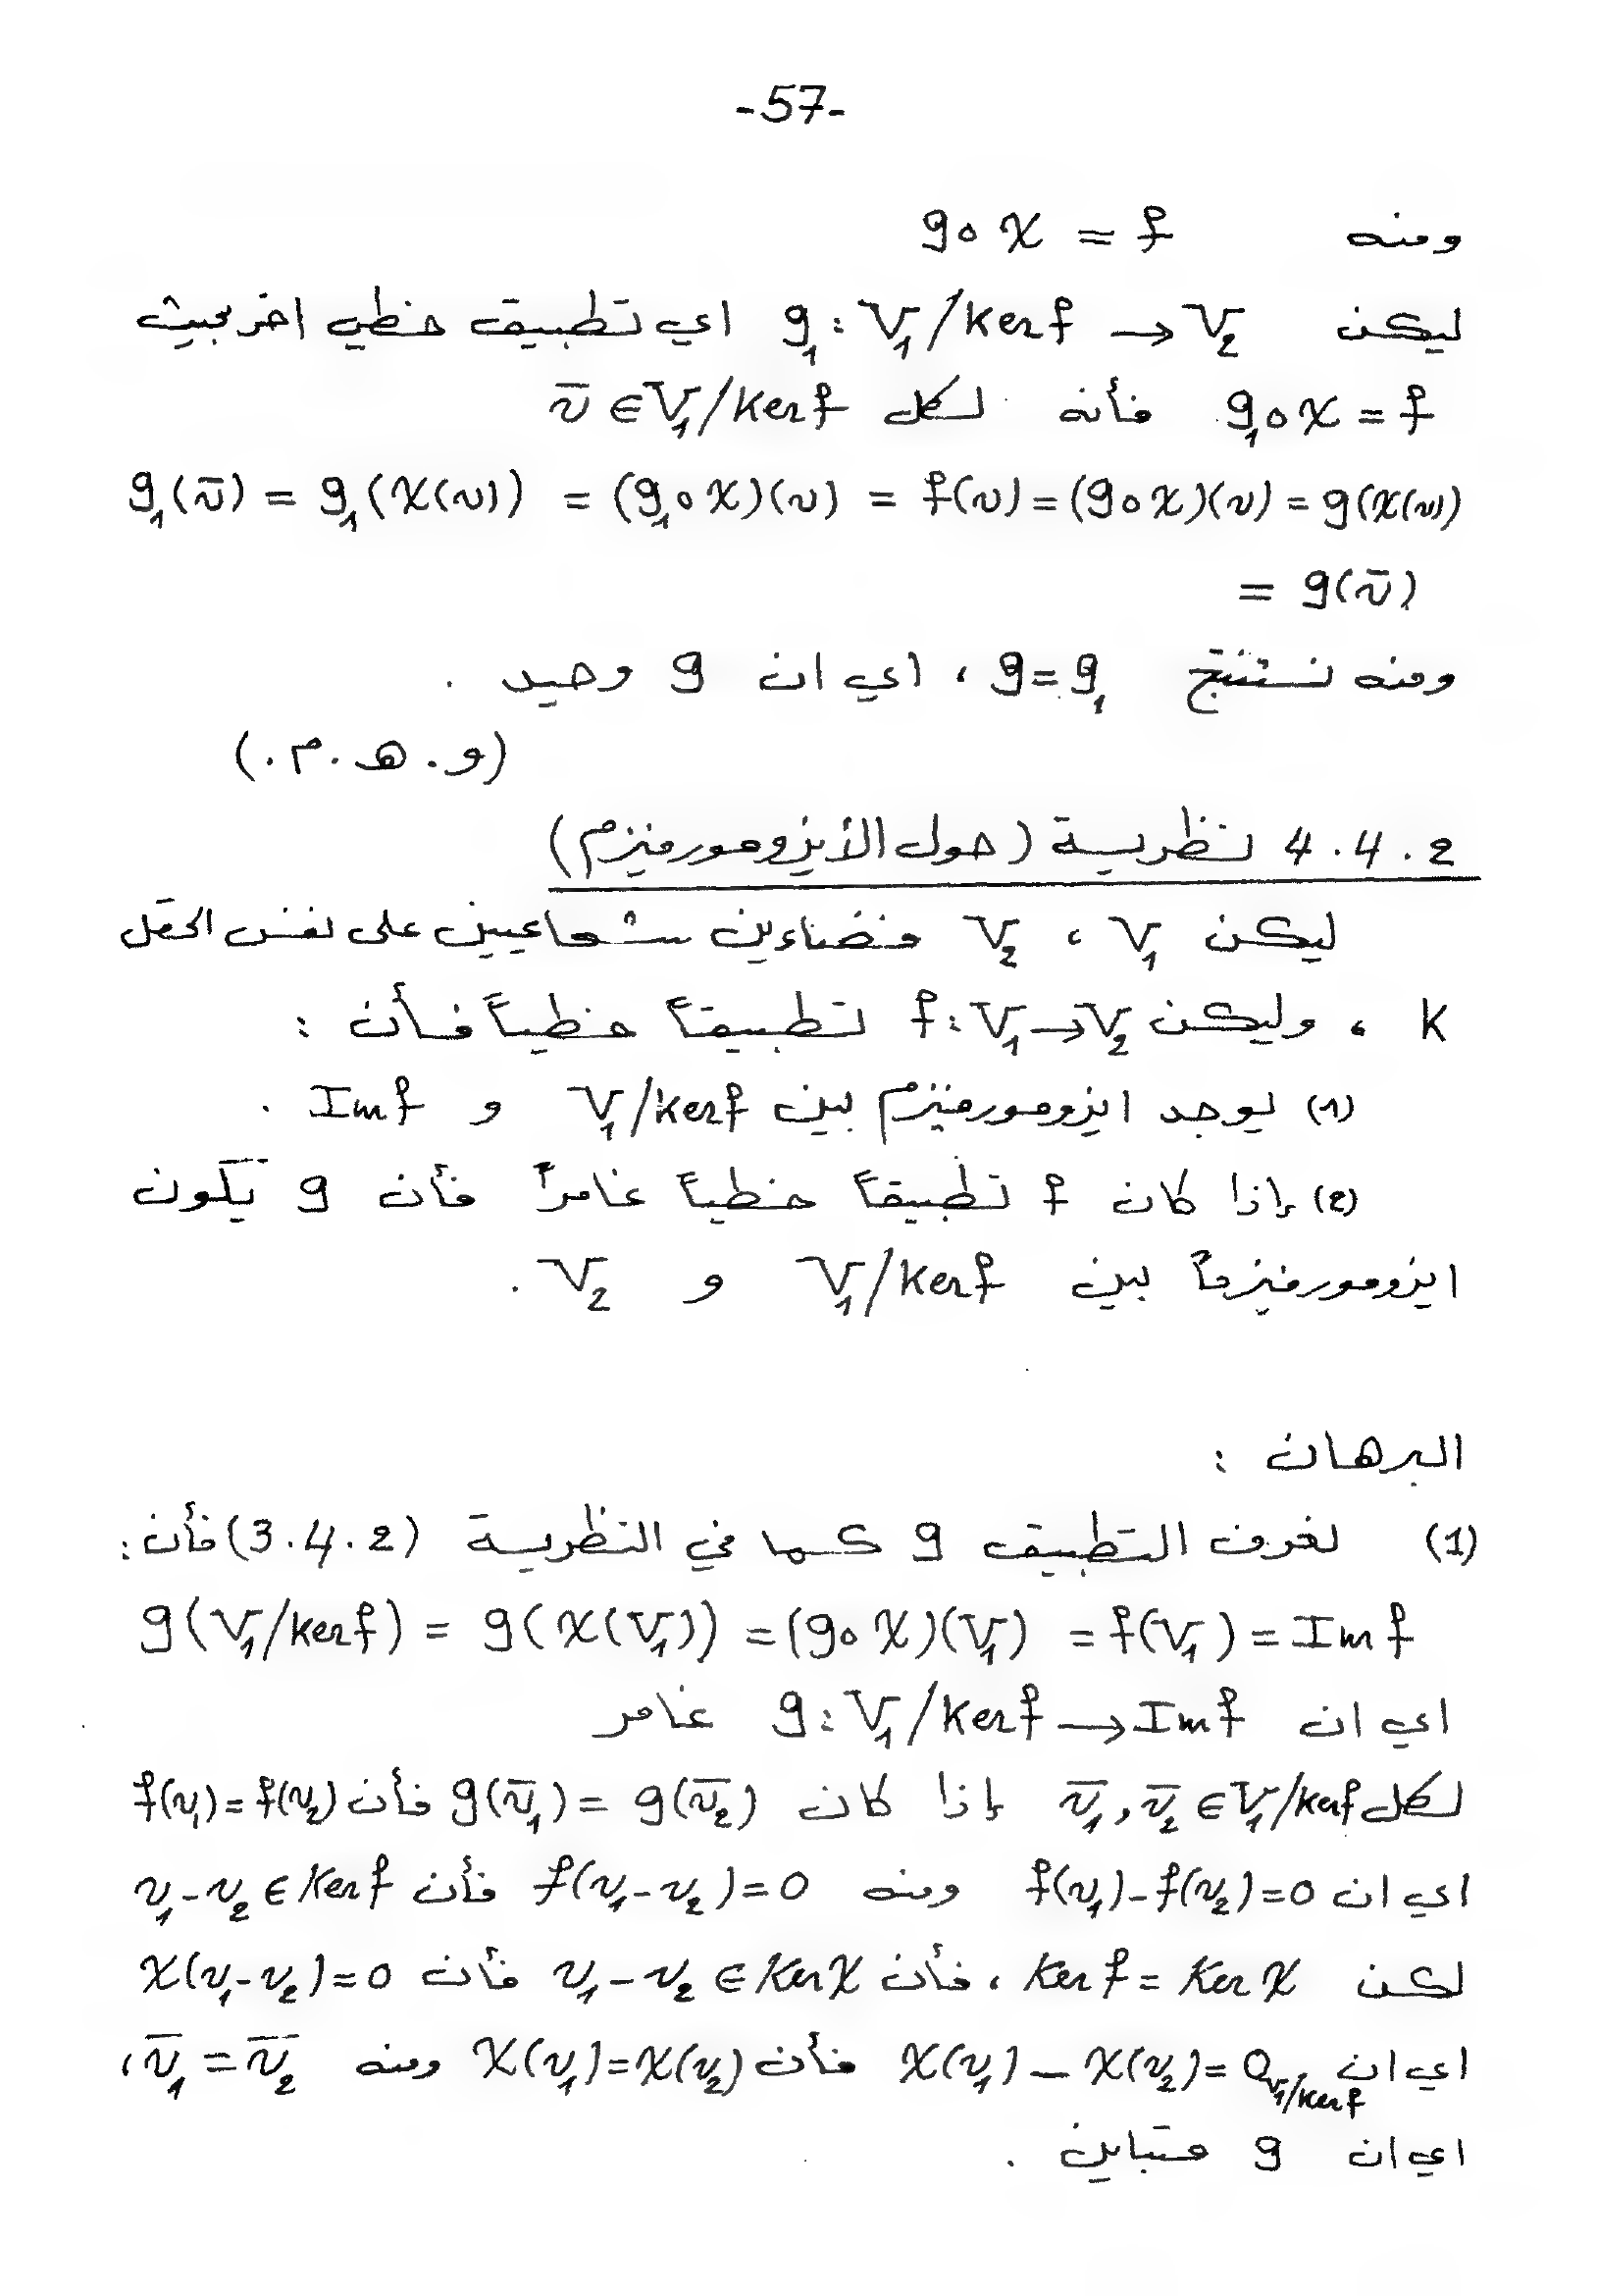 -57-
ومنه g∘χ = f
ليكن g₁: V₁/Kerf → V₂ اي تطبيق خطي اخر بحيث
g₁∘χ = f فأنه لكل v̄ ∈ V₁/Kerf
g₁(v̄) = g₁(χ(v)) = (g₁∘χ)(v) = f(v) = (g∘χ)(v) = g(χ(v))
= g(v̄)
ومنه نستنتج g=g₁ ، اي ان g وحيد .
(و . هـ . م .)
4.4.2 نظرية (حول الأيزومورفيزم)
ليكن V₁ ، V₂ فضاءين شعاعيين على نفس الحقل
K ، وليكن f: V₁→V₂ تطبيقاً خطياً فأن :
(1) يوجد ايزومورفيزم بين V₁/kerf و Imf .
(2) إذا كان f تطبيقاً خطياً غامراً فأن g يكون
ايزومورفيزماً بين V₁/Kerf و V₂ .
البرهان :
(1) لنعرف التطبيق g كما في النظرية (3.4.2) فأن :
g(V₁/kerf) = g(χ(V₁)) = (g∘χ)(V₁) = f(V₁) = Imf
اي ان g: V₁/Kerf → Imf غامر
لكل v̄₁, v̄₂ ∈ V₁/kerf إذا كان g(v̄₁) = g(v̄₂) فأن f(v₁) = f(v₂)
اي ان f(v₁) - f(v₂) = 0 ومنه f(v₁-v₂) = 0 فأن v₁-v₂ ∈ Kerf
لكن Kerf = Kerχ ، فأن v₁-v₂ ∈ Kerχ فأن χ(v₁-v₂) = 0
اي ان χ(v₁) - χ(v₂) = 0_{V₁/Kerf} فأن χ(v₁) = χ(v₂) ومنه v̄₁ = v̄₂ ،
اي ان g متباين .